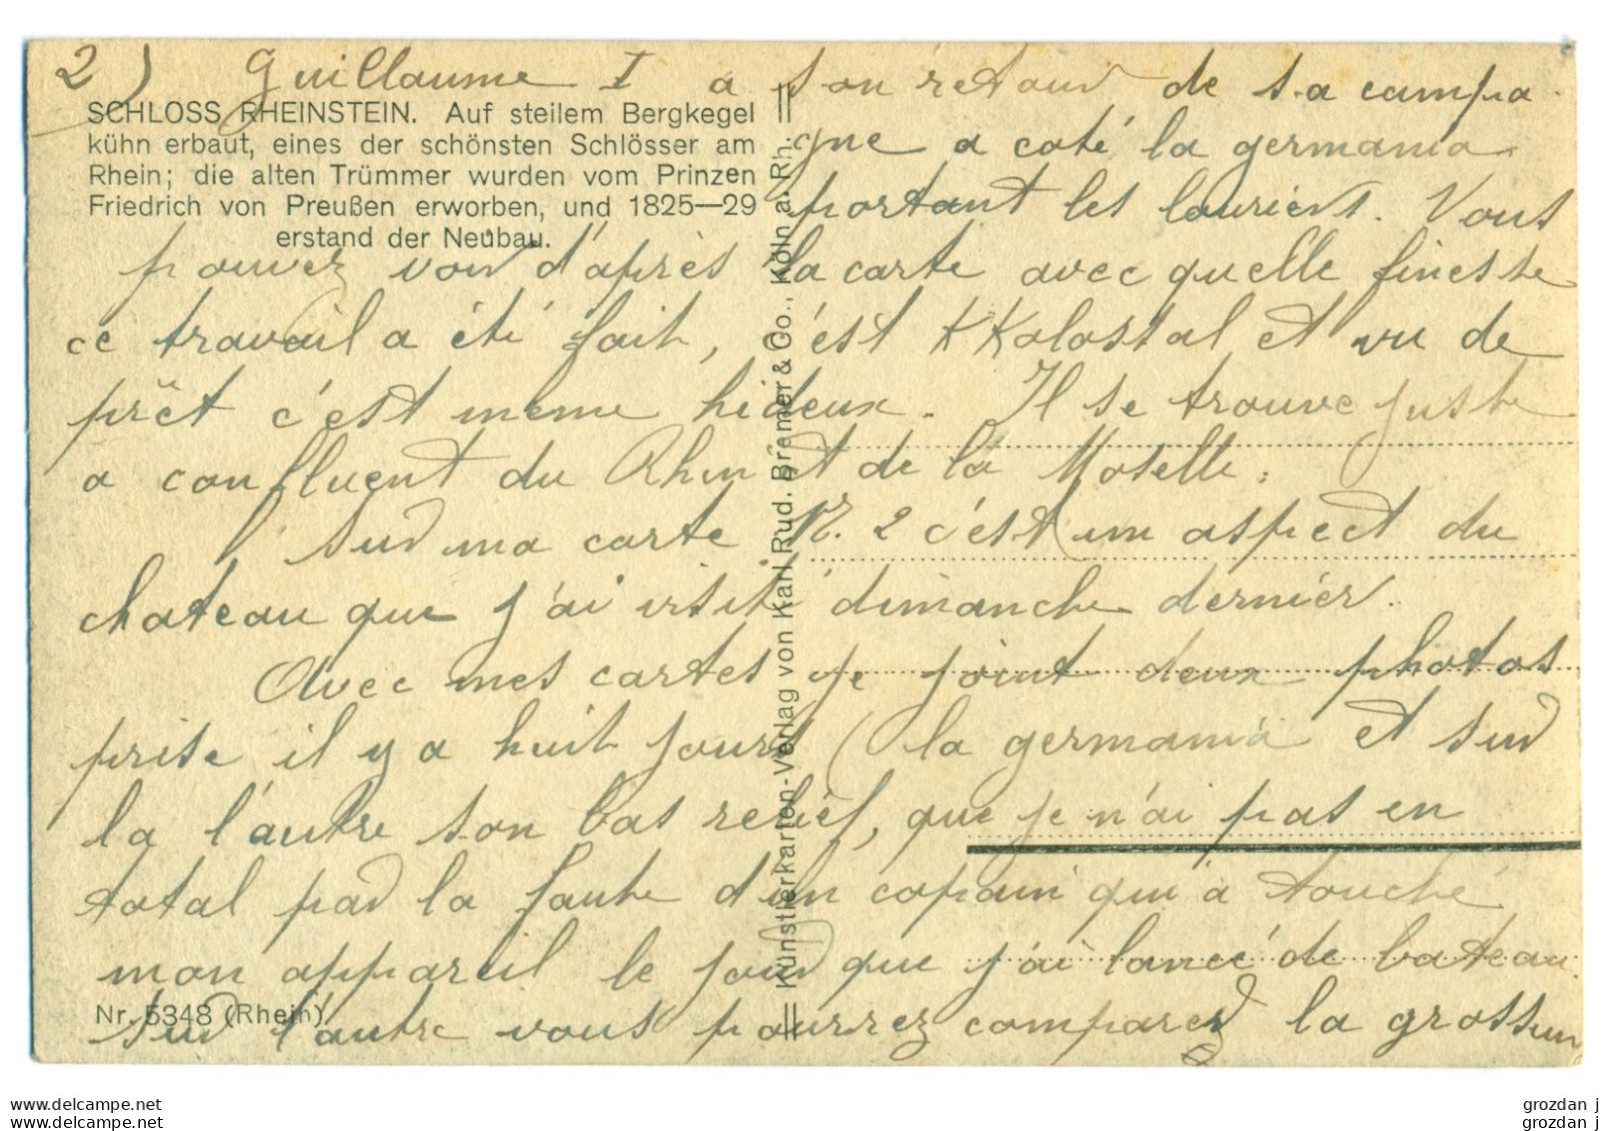 2) Guillaume I a son retour de sa campa
SCHLOSS RHEINSTEIN. Auf steilem Bergkegel
kühn erbaut, eines der schönsten Schlösser am
Rhein; die alten Trümmer wurden vom Prinzen
Friedrich von Preußen erworben, und 1825—29
erstand der Neubau.
gne a coté la germania
portant les lauriers. Vous
pouvez voir d'après la carte avec quelle finesse
ce travail a été fait, c'est Kolossal et vu de
prêt c'est meme hideux. Il se trouve juste
a confluent du Rhin et de la Moselle.
Sur ma carte N. 2 c'est un aspect du
chateau que j'ai visité dimanche dernier.
Avec mes cartes je joint deux photos
prise il y a huit jours (la germania et sur
la l'autre son bas relief, que je n'ai pas en
total par la faute d'un copain qui à touché
mon appareil le jour que j'ai lancé de bateau.
Sur l'autre vous pourrez comparer la grosseur
Nr. 5348 (Rhein)
Künstlerkarten-Verlag von Karl Rud. Bremer & Co., Köln a. Rh.
www.delcampe.net
www.delcampe.net
grozdan j
grozdan j